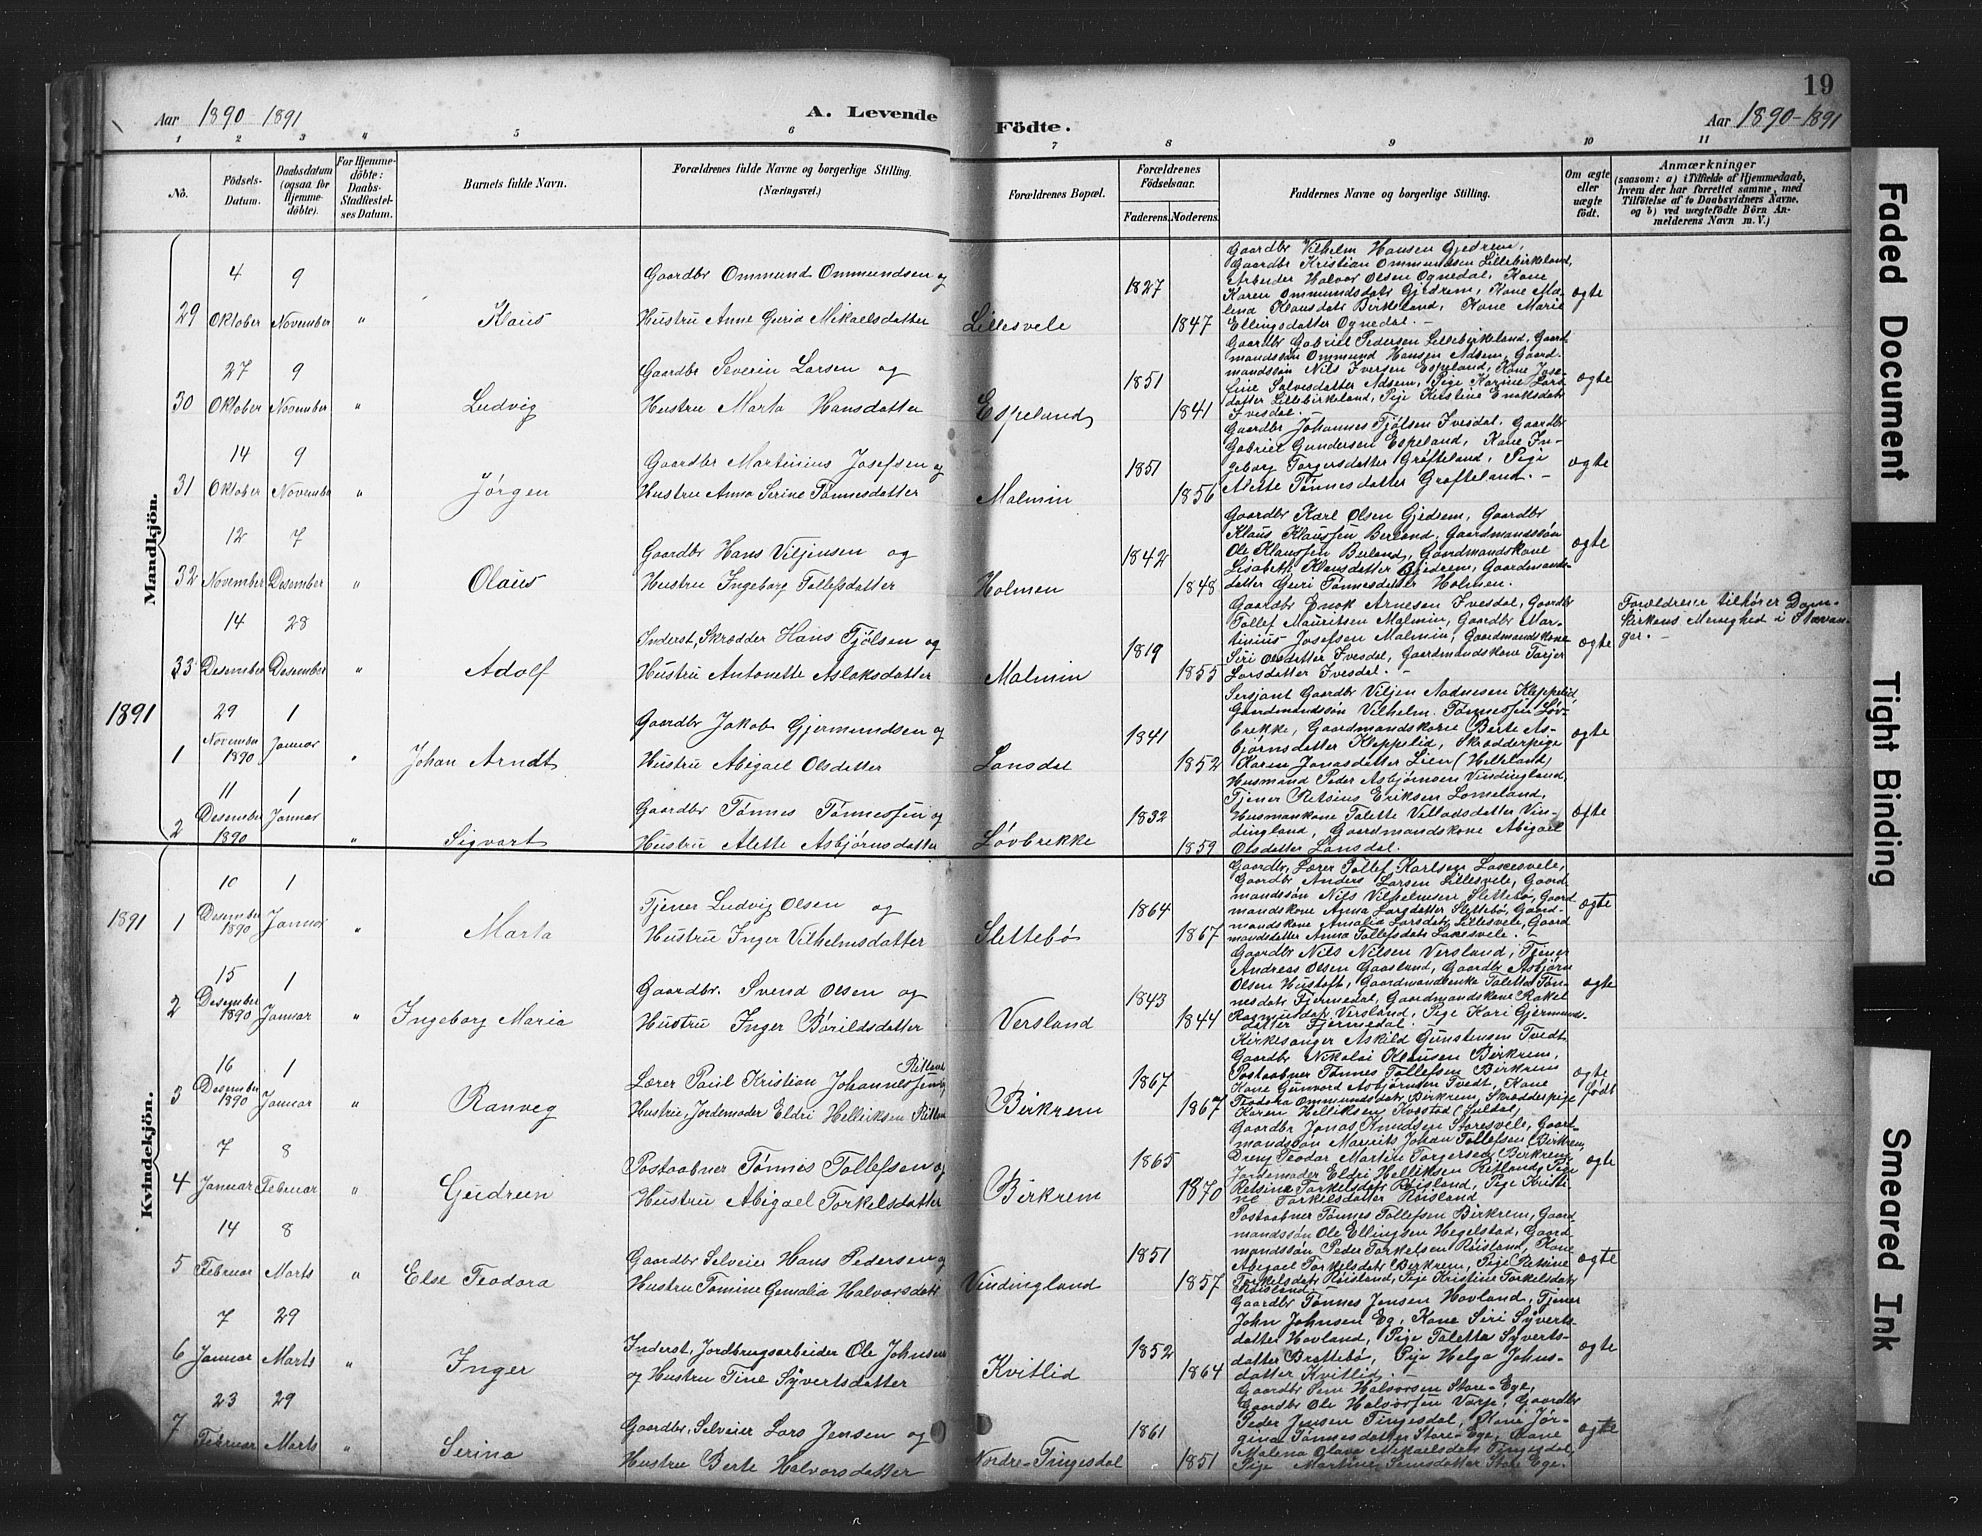 Aar 1890-1891
A. Levende
Födte.
Aar 1890-1891
19
1 2 3 4 5 6 7 8 9 10 11
No.
Födsels-
Datum.
Daabsdatum
(ogsaa for
Hjemme-
döbte).
For Hjemme-
döbte:
Daabs-
Stadfæstel-
ses Datum.
Barnets fulde Navn.
Forældrenes fulde Navne og borgerlige Stilling.
(Næringsvei.)
Forældrenes Bopæl.
Forældrenes
Födselsaar.
Faderens. Moderens.
Faddernes Navne og borgerlige Stilling.
Om ægte
eller
uægte
födt.
Anmærkninger
(saasom: a) i Tilfælde af Hjemmedaab,
hvem der har forrettet samme, med
Tilföielse af to Daabsvidners Navne,
og b) ved uægtefödte Börn An-
melderens Navn m. V.)
Mandkjön.
29
4
Oktober
9
November
"
Klaus
Gaardbr Ommund Ommundsen og
Hustru Anne Gurid Mikaelsdatter
Lillesvele
1827
1847
Gaardbr Vilhelm Hansen Gjedrem,
Gaardbr Kristian Ommundsen Lillebirkeland,
Arbeider Halvor Olsen Ognedal, Kone
Karen Ommundsdatr Gjedrem, Kone Ma-
lena Klausdatr Birkeland, Kone Marie
Ellingsdatter Ognedal. -
ægte
30
27
Oktober
9
November
"
Ludvig
Gaardbr Severin Larsen og
Hustru Marta Hansdatter
Espeland
1851
1841
Gaardbr Gabriel Pedersen Lillebirkeland, Gaard
mandssøn Ommund Hansen Adsem, Gaard
mandssøn Nils Iversen Espeland, Kone Jose-
fine Salvesdatter Adsem, Pige Karine Lars
datter Lillebirkeland, Pige Kristine Enoksdatr
Ivesdal.
ægte
31
14
Oktober
9
November
"
Jørgen
Gaardbr Martinius Josefsen og
Hustru Anna Serine Tønnesdatter
Malmin
1851
1856
Gaardbr Johannes Fjølsen Ivesdal, Gaardbr
Gabriel Gundersen Espeland, Kone In-
geborg Torgersdatter Grøfteland, Pige
Alette Tønnesdatter Grøfteland. -
ægte
32
12
November
7
Desember
"
Olaus
Gaardbr Hans Viljensen og
Hustru Ingeborg Tollefsdatter
Holmen
1842
1848
Gaardbr Karl Olsen Gjedrem, Gaardbr
Klaus Klaussen Berland, Gaardmandssøn
Ole Klaussen Berland, Gaardmandskone
Lisabeth Klausdatter Gjedrem, Gaardmands-
datter Guri Tønnesdatter Holmen.
ægte
33
14
Desember
28
Desember
"
Adolf
Inderst, Skrædder Hans Fjølsen og
Hustru Antonette Aslaksdatter
Malmin
1819
1855
Gaardbr Enok Arnesen Ivesdal, Gaardbr
Tollef Mauritsen Malmin, Gaardbr Mar-
tinius Josefsen Malmin, Gaardmandskone
Siri Olsdatter Ivesdal, Gaardmandskone Torjer
Larsdatter Ivesdal. -
ægte
Forældrene tilhører Dom-
kirkens Menighed i Stavan-
ger. -
1891
1
29
November
1890
1
Januar
"
Johan Arndt
Gaardbr Jakob Gjermundsen og
Hustru Abigael Olsdatter
Lonsdal
1841
1852
Sersjant Gaardbr Viljen Aadnesen Kleppelid,
Gaardmandssøn Vilhelm Tønnessen Løv-
brekke, Gaardmandskone Berte As-
bjørnsdatter Kleppelid, Skrædderpige
Karen Jonasdatter Lien (Helleland)
ægte
2
11
Desember
1890
1
Januar
"
Sigvart
Gaardbr Tønnes Tønnessen og
Hustru Alette Asbjørnsdatter
Løvbrekke
1832
1859
Husmand Peder Asbjørnsen Vindingland,
Tjener Retsius Eriksen Lomeland,
Husmankone Talette Villadsdatter Vin-
dingland, Gaardmandskone Abigael
Olsdatter Lonsdal.
ægte
Kvindekjön.
1891
1
10
Desember
1890
1
Januar
"
Marta
Tjener Ludvig Olsen og
Hustru Inger Vilhelmsdatter
Slettebø
1864
1867
Gaardbr, Lærer Tollef Karlsen Laxesvele,
Gaardbr Anders Larsen Lillesvele, Gaard
mandssøn Nils Vilhelmsen Slettebø, Gaard
mandskone Anna Larsdatter Slettebø, Gaard-
mandskone Amalia Larsdatr Lillesvele, Gaard
mandsdatter Anna Tollefsdatr Laxesvele. -
ægte
2
15
Desember
1890
1
Januar
"
Ingeborg Maria
Gaardbr. Svend Olsen og
Hustru Inger Børildsdatter
Versland
1843
1844
Gaardbr Nils Nilsen Versland, Tjener
Andreas Olsen Gaasland, Gaardbr Asbjørn
Olsen Hustoft, Gaardmandsenke Taletta Tøn-
nesdatr Fjermedal, Gaardmandskone Rakel
Rasmusdatr Versland, Pige Kari Gjermund-
datter Fjermedal.
ægte
3
16
Desember
1890
1
Januar
"
Ranveg
Lærer Paul Kristian Johannessen Ritland og
Hustru, Jordemoder Eldri Helliksen Ritland
Birkrem
1867
1867
Kirkesanger Askild Gunstensen Tvedt,
Gaardbr Nikolai Klausen Birkrem,
Postaabner Tønnes Tollefsen Birkrem
Kone Gunvord Asbjørnsen Tvedt, Kone
Teodora Ommundsdatr Birkrem, Skrædderpige
Karen Helliksen Kvæstad (Suldal)
ægte
født
4
7
Januar
8
Februar
"
Gudrun
Postaabner Tønnes Tollefsen og
Hustru Abigael Torkelsdatter
Birkrem
1865
1870
Gaardbr Jonas Knudsen Storesvele, Gaard-
mandssøn Maurits Johan Tollefsen Birkrem
Dreng Teodor Martin Torgersen Birkrem,
Jordemoder Eldri Helliksen Ritland, Pige
Retsine Torkelsdatr Røisland, Pige Kristi
ne Torkelsdatter Røisland
ægte
5
14
Februar
8
Marts
"
Else Teodora
Gaardbr Selveier Hans Pedersen og
Hustru Tomine Gemalia Halvorsdatr
Vindingland
1851
1857
Postaabner Tønnes Tollefsen Birkrem, Gaard
mandssøn Ole Ellingsen Hegelstad, Gaard
mandssøn Peder Torkelsen Røisland, Kone
Abigael Torkelsdatr Birkrem, Pige Retsine
Torkelsdatr Røisland, Pige Kristine Torkelsdatr
Røisland.
ægte
6
7
Januar
29
Marts
"
Inger
Inderst, Jordbrugsarbeider Ole Johnsen
og Hustru Tine Syvertsdatter
Kvitlid
1852
1864
Gaardbr Tønnes Jensen Hovland, Tjener
John Johnsen Eg, Kone Siri Syverts-
datter Hovland, Pige Taletta Syverts-
datter Brattebø, Pige Helga Johns-
datter Kvitlid. -
ægte
7
23
Februar
29
Marts
"
Serina
Gaardbr, Selveier Lars Jensen og
Hustru Berte Halvorsdatter
Nordre-Tingesdal
1861
1851
Gaardbr Sem Halvorsen Store-Ege,
Gaardbr Ole Halvorsen Varp, Gaardbr
Peder Jensen Tingesdal, Kone Jør-
gina Tønnesdatter Store-Ege, Kone
Malena Olava Mikaelsdatr Tingesdal,
Pige Martine Semsdatter Store Ege.
ægte
Faded Document
Tight Binding
Smeared Ink